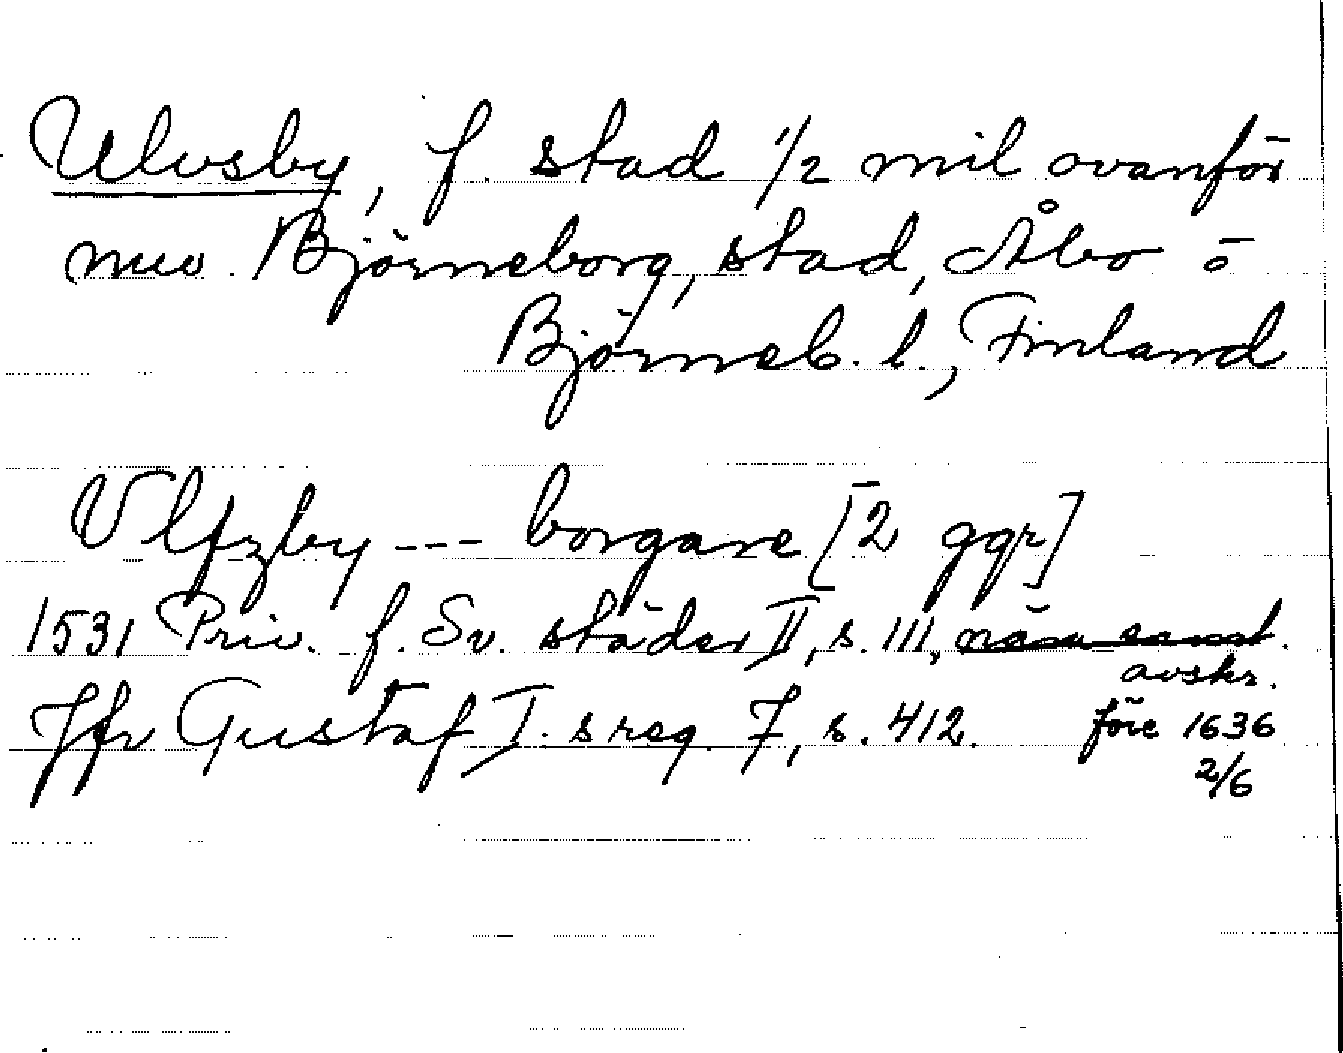 Ulvsby, f. stad 1/2 mil ovanför
nuv. Björneborg, stad, Åbo o
Björneb. l., Finland
Vlfzby --- borgare [2 ggr]
1531 Priv. f. Sv. städer II, s. 111,
avskr.
Jfr Gustaf I.s reg. 7, s. 412. före 1636
2/6